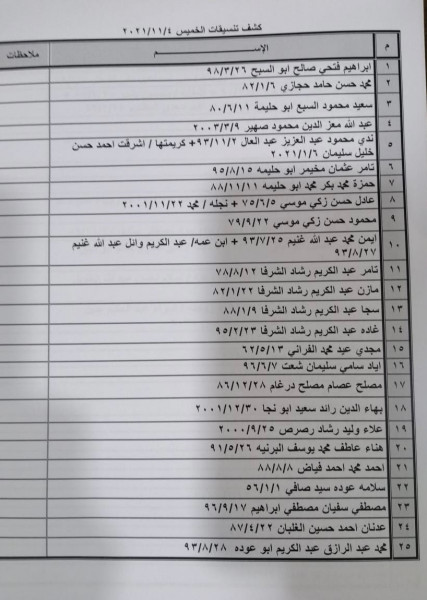 كشف تنسيقات الخميس ٢٠٢١/١١/٤
م الإســـــــم ملاحظات
١ ابراهيم فتحي صالح ابو السبح ٩٨/٣/٢٦
٢ محمد حسن حامد حجازي ٨٢/١/٦
٣ سعيد محمود السبع ابو حليمة ٨٠/٦/١١
٤ عبد الله معز الدين محمود صهير ٢٠٠٣/٣/٩
٥ ندي محمود عبد العزيز عبد العال ٩٣/١١/٢+ كريمتها / اشرقت احمد حسن
خليل سليمان ٢٠٢١/١/٦
٦ تامر عثمان مخيمر ابو حليمه ٩٥/٨/١٥
٧ حمزة محمد بكر محمد ابو حليمه ٨٨/١١/١١
٨ عادل حسن زكي موسي ٧٥/٦/٥ + نجله / محمد ٢٠٠١/١١/٢٢
٩ محمود حسن زكي موسي ٧٩/٩/٢٢
١٠ ايمن محمد عبد الله غنيم ٩٣/٧/٢٥ + ابن عمه/ عبد الكريم وائل عبد الله غنيم
٩٣/٨/٢٧
١١ تامر عبد الكريم رشاد الشرفا ٧٨/٨/١٢
١٢ مازن عبد الكريم رشاد الشرفا ٨٢/١/٢٢
١٣ سجا عبد الكريم رشاد الشرفا ٨٨/١/٩
١٤ غاده عبد الكريم رشاد الشرفا ٩٥/٢/٢٣
١٥ مجدي عيد محمد الفراني ٦٢/٥/١٣
١٦ اياد سامي سليمان شعت ٩٦/٦/٧
١٧ مصلح عصام مصلح درغام ٨٦/١٢/٢٨
١٨ بهاء الدين رائد سعيد ابو نجا ٢٠٠١/١٢/٣٠
١٩ علاء وليد رشاد رصرص ٢٠٠٠/٩/٢٥
٢٠ هناء عاطف محمد يوسف البرنيه ٩١/٥/٢٦
٢١ احمد محمد احمد فياض ٨٨/٨/٨
٢٢ سلامه عوده سيد صافي ٥٦/١/١
٢٣ مصطفي سفيان مصطفي ابراهيم ٩٦/٩/١٧
٢٤ عدنان احمد حسين الغلبان ٨٧/٤/٢٢
٢٥ محمد عبد الرازق عبد الكريم ابو عوده ٩٣/٨/٢٨